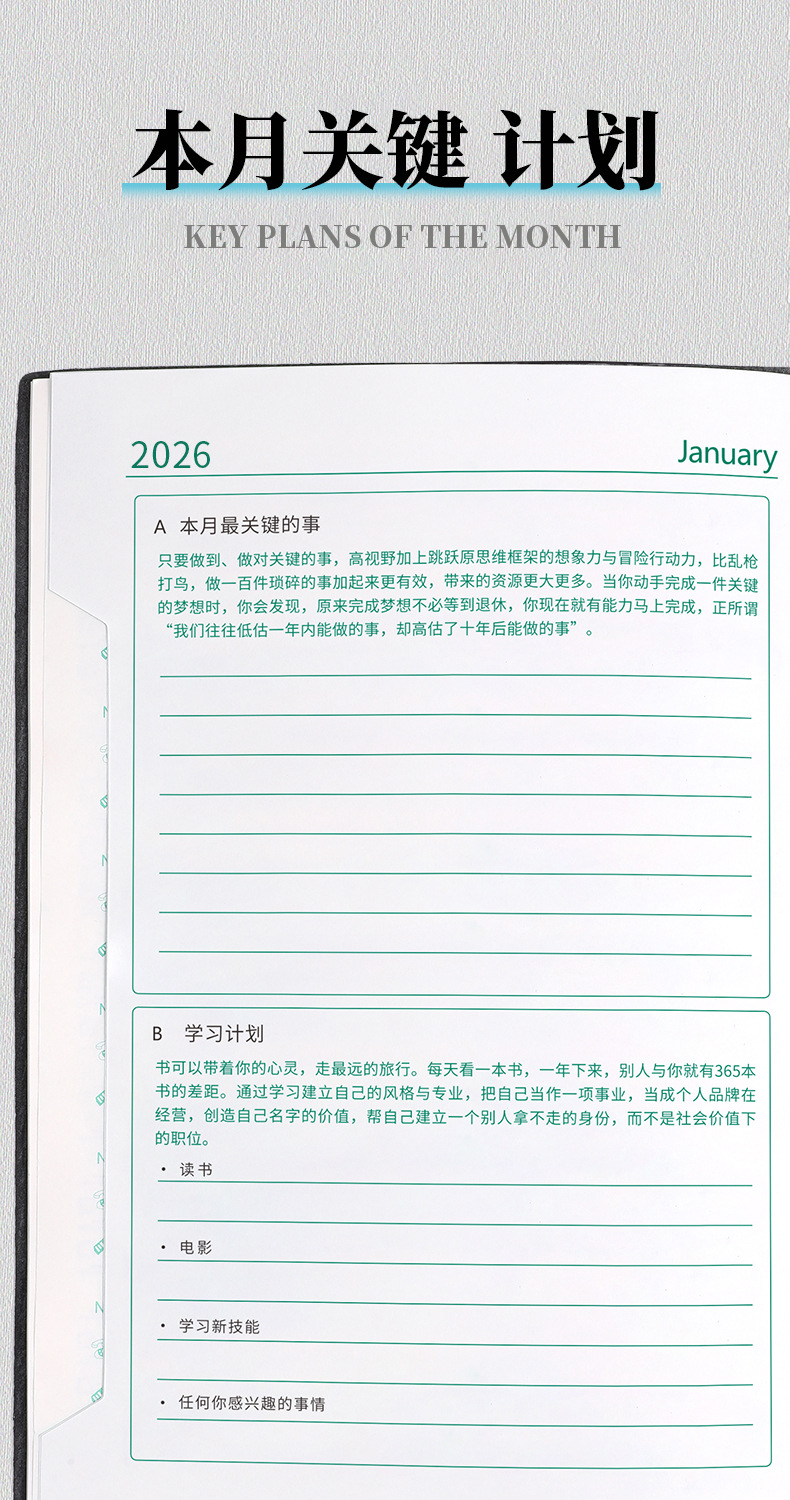 本月关键 计划
KEY PLANS OF THE MONTH
2026
January
A 本月最关键的事
只要做到、做对关键的事，高视野加上跳跃原思维框架的想象力与冒险行动力，比乱枪
打鸟，做一百件琐碎的事加起来更有效，带来的资源更大更多。当你动手完成一件关键
的梦想时，你会发现，原来完成梦想不必等到退休，你现在就有能力马上完成，正所谓
“我们往往低估一年内能做的事，却高估了十年后能做的事”。
B 学习计划
书可以带着你的心灵，走最远的旅行。每天看一本书，一年下来，别人与你就有365本
书的差距。通过学习建立自己的风格与专业，把自己当作一项事业，当成个人品牌在
经营，创造自己名字的价值，帮自己建立一个别人拿不走的身份，而不是社会价值下
的职位。
· 读书
· 电影
· 学习新技能
· 任何你感兴趣的事情